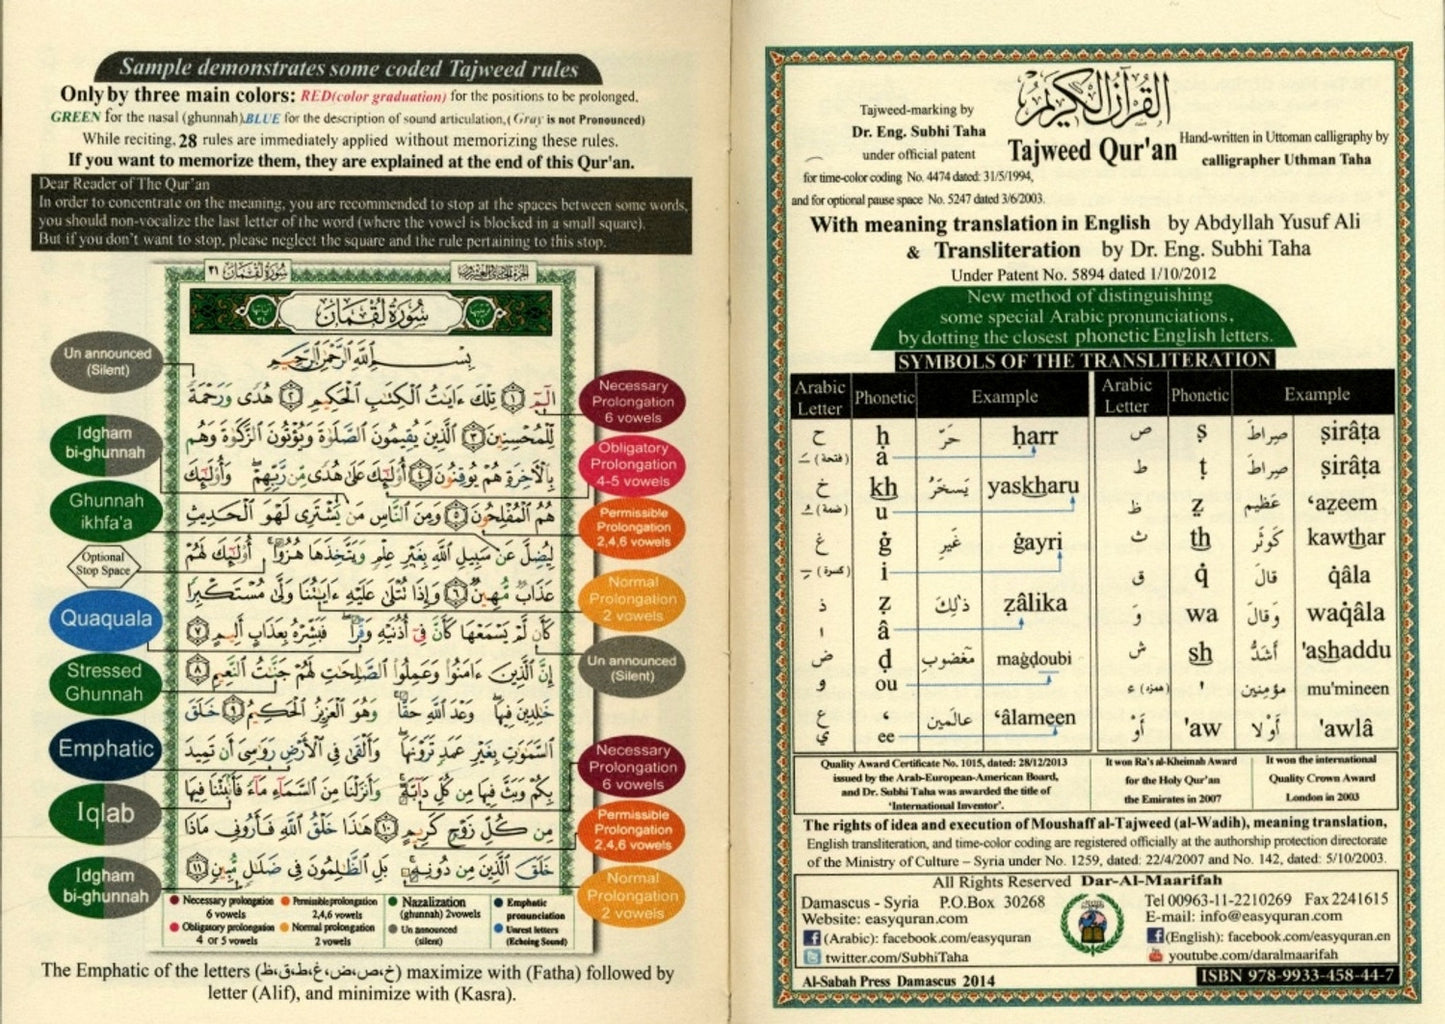 Sample demonstrates some coded Tajweed rules
Only by three main colors: RED(color graduation) for the positions to be prolonged.
GREEN for the nasal (ghunnah).BLUE for the description of sound articulation,(Gray is not Pronounced)
While reciting, 28 rules are immediately applied without memorizing these rules.
If you want to memorize them, they are explained at the end of this Qur'an.
Dear Reader of The Qur'an
In order to concentrate on the meaning, you are recommended to stop at the spaces between some words,
you should non-vocalize the last letter of the word (where the vowel is blocked in a small square).
But if you don't want to stop, please neglect the square and the rule pertaining to this stop.
سُورَةُ لُقْمَان ٣١
سُورَةُ لُقْمَان
بِسْمِ اللَّهِ الرَّحْمَٰنِ الرَّحِيمِ
الٓمٓ ١ تِلْكَ ءَايَٰتُ الْكِتَٰبِ الْحَكِيمِ ٢ هُدًى وَرَحْمَةً
لِّلْمُحْسِنِينَ ٣ الَّذِينَ يُقِيمُونَ الصَّلَوٰةَ وَيُؤْتُونَ الزَّكَوٰةَ وَهُم
بِالْءَاخِرَةِ هُمْ يُوقِنُونَ ٤ أُوْلَٰٓئِكَ عَلَىٰ هُدًى مِّن رَّبِّهِمْ وَأُوْلَٰٓئِكَ
هُمُ الْمُفْلِحُونَ ٥ وَمِنَ النَّاسِ مَن يَشْتَرِى لَهْوَ الْحَدِيثِ
لِيُضِلَّ عَن سَبِيلِ اللَّهِ بِغَيْرِ عِلْمٍ وَيَتَّخِذَهَا هُزُوًا أُوْلَٰٓئِكَ لَهُمْ
عَذَابٌ مُّهِينٌ ٦ وَإِذَا تُتْلَىٰ عَلَيْهِ ءَايَٰتُنَا وَلَّىٰ مُسْتَكْبِرًا
كَأَن لَّمْ يَسْمَعْهَا كَأَنَّ فِىٓ أُذُنَيْهِ وَقْرًا فَبَشِّرْهُ بِعَذَابٍ أَلِيمٍ ٧
إِنَّ الَّذِينَ ءَامَنُوا وَعَمِلُوا الصَّٰلِحَٰتِ لَهُمْ جَنَّٰتُ النَّعِيمِ ٨
خَٰلِدِينَ فِيهَا وَعْدَ اللَّهِ حَقًّا وَهُوَ الْعَزِيزُ الْحَكِيمُ ٩ خَلَقَ
السَّمَٰوَٰتِ بِغَيْرِ عَمَدٍ تَرَوْنَهَا وَأَلْقَىٰ فِى الْأَرْضِ رَوَٰسِىَ أَن تَمِيدَ
بِكُمْ وَبَثَّ فِيهَا مِن كُلِّ دَآبَّةٍ وَأَنزَلْنَا مِنَ السَّمَآءِ مَآءً فَأَنۢبَتْنَا فِيهَا
مِن كُلِّ زَوْجٍ كَرِيمٍ ١٠ هَٰذَا خَلْقُ اللَّهِ فَأَرُونِى مَاذَا
خَلَقَ الَّذِينَ مِن دُونِهِ بَلِ الظَّٰلِمُونَ فِى ضَلَٰلٍ مُّبِينٍ ١١
Un announced
(Silent)
Idgham
bi-ghunnah
Ghunnah
ikhfa'a
Optional
Stop Space
Quaquala
Stressed
Ghunnah
Emphatic
Iqlab
Idgham
bi-ghunnah
Necessary
Prolongation
6 vowels
Obligatory
Prolongation
4-5 vowels
Permissible
Prolongation
2,4,6 vowels
Normal
Prolongation
2 vowels
Un announced
(Silent)
Necessary
Prolongation
6 vowels
Permissible
Prolongation
2,4,6 vowels
Normal
Prolongation
2 vowels
Necessary prolongation Permissible prolongation Nazalization Emphatic
6 vowels 2,4,6 vowels (ghunnah) 2vowels pronunciation
Obligatory prolongation Normal prolongation Un announced Unrest letters
4 or 5 vowels 2 vowels (silent) (Echoing Sound)
The Emphatic of the letters (خ،ص،ض،غ،ط،ق،ظ) maximize with (Fatha) followed by
letter (Alif), and minimize with (Kasra).
القرآن الكريم
Tajweed Qur'an
Tajweed-marking by
Dr. Eng. Subhi Taha
under official patent
for time-color coding No. 4474 dated: 31/5/1994,
and for optional pause space No. 5247 dated 3/6/2003.
Hand-written in Uttoman calligraphy by
calligrapher Uthman Taha
With meaning translation in English by Abdyllah Yusuf Ali
& Transliteration by Dr. Eng. Subhi Taha
Under Patent No. 5894 dated 1/10/2012
New method of distinguishing
some special Arabic pronunciations,
by dotting the closest phonetic English letters.
SYMBOLS OF THE TRANSLITERATION
Arabic Letter Phonetic Example Arabic Letter Phonetic Example
ح ḥ حَرّ ḥarr ص ṣ صِراطَ ṣirâṭa
(فتحة) َ a ط ṭ صِراطَ ṣirâṭa
خ kh يَسخَرُ yaskharu ظ ẓ عَظيم ‘aẓeem
(ضمة) ُ u ث th كَوثَر kawthar
غ ġ غَيرِ ġayri ق q̇ قالَ q̇âla
(كسرة) ِ i
ذ ẓ ذٰلِكَ ẓâlika وَ wa وَقالَ waq̇âla
ا â
ض ḍ مَغضوب maġdoubi ش sh أَشَدُّ 'ashaddu
و ou ء (همزة) ' مؤمِنين mu'mineen
ع ‘ عالَمين ‘âlameen أَوْ 'aw أَوْلا 'awlâ
ي ee
Quality Award Certificate No. 1015, dated: 28/12/2013
issued by the Arab-European-American Board,
and Dr. Subhi Taha was awarded the title of
'International Inventor'.
It won Ra's al-Kheimah Award
for the Holy Qur'an
the Emirates in 2007
It won the international
Quality Crown Award
London in 2003
The rights of idea and execution of Moushaff al-Tajweed (al-Wadih), meaning translation,
English transliteration, and time-color coding are registered officially at the authorship protection directorate
of the Ministry of Culture – Syria under No. 1259, dated: 22/4/2007 and No. 142, dated: 5/10/2003.
All Rights Reserved Dar-Al-Maarifah
Damascus - Syria P.O.Box 30268
Website: easyquran.com
(Arabic): facebook.com/easyquran
twitter.com/SubhiTaha
Tel 00963-11-2210269 Fax 2241615
E-mail: info@easyquran.com
(English): facebook.com/easyquran.en
youtube.com/daralmaarifah
Al-Sabah Press Damascus 2014
ISBN 978-9933-458-44-7